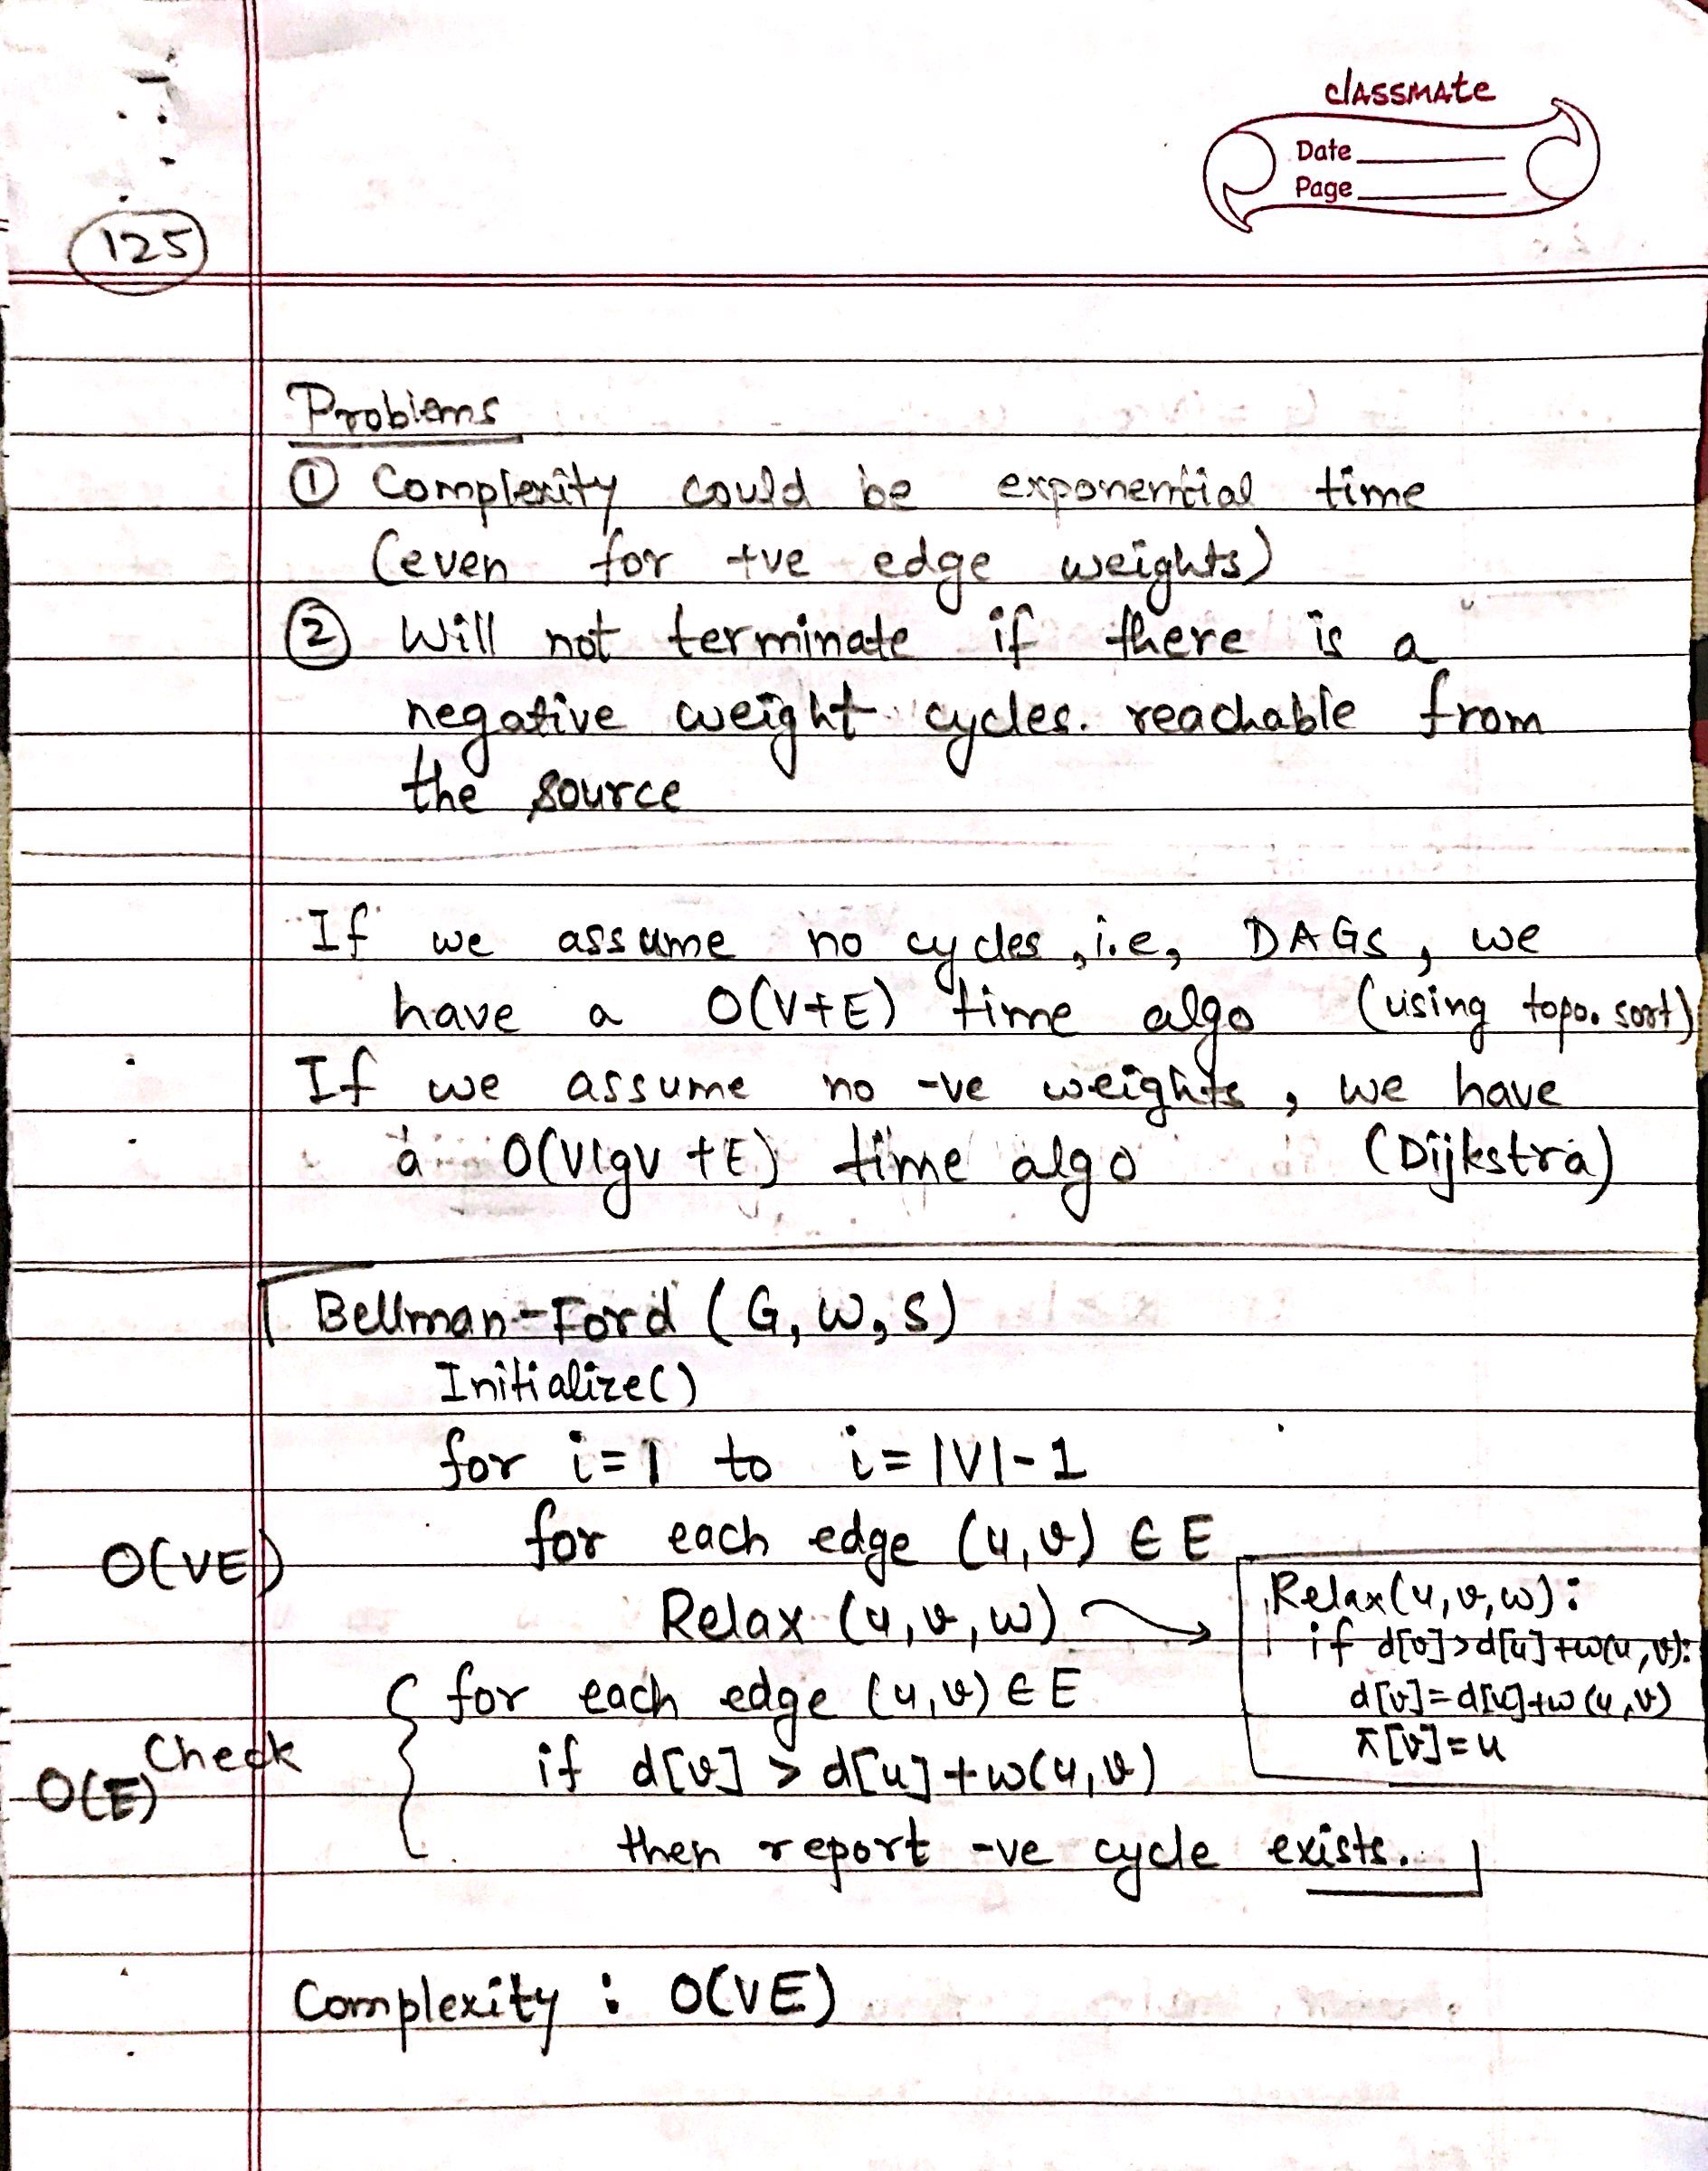 classmate
Date
Page
125
Problems
① Complexity could be exponential time
(even for +ve edge weights)
② Will not terminate if there is a
negative weight cycles. reachable from
the source
If we assume no cycles, i.e, DAGs, we
have a O(V+E) time algo (using topo. sort)
If we assume no -ve weights, we have
a O(VlgV + E) time algo (Dijkstra)
Bellman-Ford (G, W, S)
Initialize()
for i=1 to i=|V|-1
for each edge (u,v) ∈ E
O(VE)
Relax (u,v,w)
Relax(u,v,w):
if d[v]>d[u]+w(u,v):
d[v]=d[u]+w(u,v)
π[v]=u
for each edge (u,v) ∈ E
Check
O(E)
if d[v] > d[u]+w(u,v)
then report -ve cycle exists.
Complexity : O(VE)